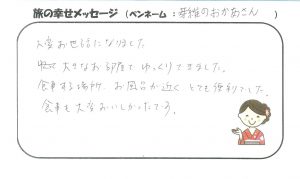 旅の幸せメッセージ （ペンネーム：芽維のおかあさん ）
大変お世話になりました
大きなお部屋でゆっくりできました。
食事する場所、お風呂が近く とても便利でした。
食事も大変おいしかったです。